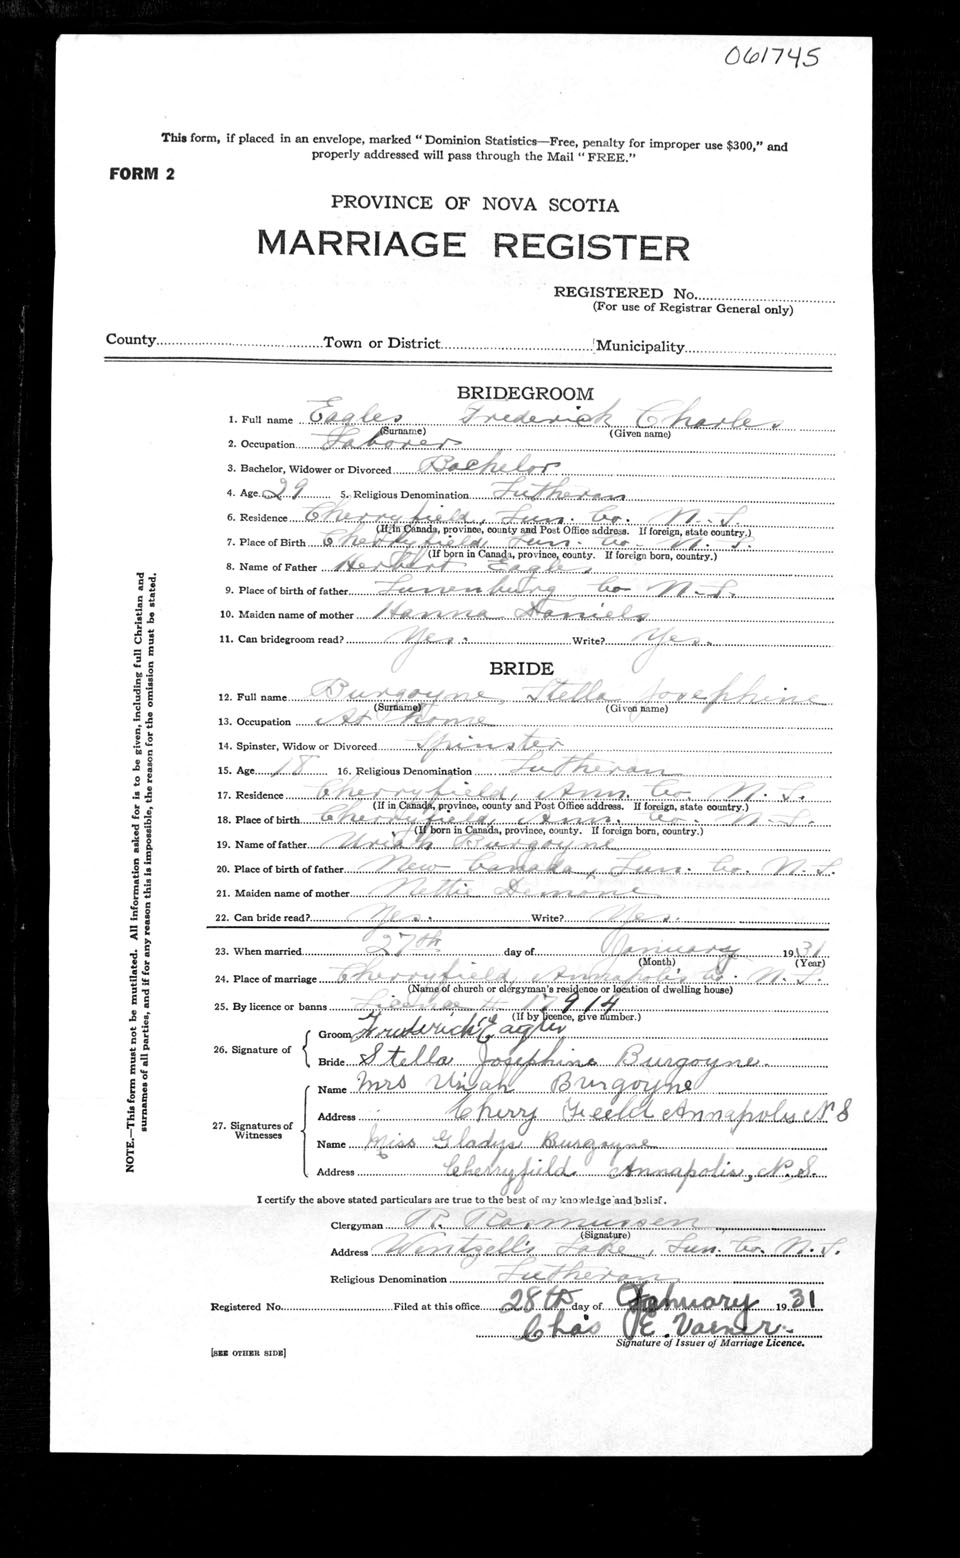 061745
This form, if placed in an envelope, marked "Dominion Statistics—Free, penalty for improper use $300," and
properly addressed will pass through the Mail "FREE."
FORM 2
PROVINCE OF NOVA SCOTIA
MARRIAGE REGISTER
REGISTERED No.
(For use of Registrar General only)
County Town or District Municipality
BRIDEGROOM
1. Full name Eagles Frederick Charles
(Surname) (Given name)
2. Occupation Laborer
3. Bachelor, Widower or Divorced Bachelor
4. Age 29 5. Religious Denomination Lutheran
6. Residence Cherryfield, Lun. Co. N.S.
(If in Canada, province, county and Post Office address. If foreign, state country.)
7. Place of Birth Cherryfield, Lun. Co. N.S.
(If born in Canada, province, county. If foreign born, country.)
8. Name of Father Herbert Eagles
9. Place of birth of father Lunenburg Co N.S.
10. Maiden name of mother Hanna Daniels
11. Can bridegroom read? Yes. Write? Yes.
BRIDE
12. Full name Burgoyne, Stella Josephine
(Surname) (Given name)
13. Occupation At Home
14. Spinster, Widow or Divorced Spinster
15. Age 18 16. Religious Denomination Lutheran
17. Residence Cherryfield, Ann. Co. N.S.
(If in Canada, province, county and Post Office address. If foreign, state country.)
18. Place of birth Cherryfield, Ann. Co. N.S.
(If born in Canada, province, county. If foreign born, country.)
19. Name of father Uriah Burgoyne
20. Place of birth of father New Canada, Lun. Co. N.S.
21. Maiden name of mother Nettie Demone
22. Can bride read? Yes. Write? Yes.
23. When married 27th day of January 1931
(Month) (Year)
24. Place of marriage Cherryfield, Annapolis Co. N.S.
(Name of church or clergyman's residence or location of dwelling house)
25. By licence or banns Licence # 17914
(If by licence, give number.)
26. Signature of
Groom Frederick Eagles
Bride Stella Josephine Burgoyne.
27. Signatures of Witnesses
Name Mrs Uriah Burgoyne
Address Cherry Field Annapolis N S
Name Miss Gladys Burgoyne
Address Cherryfield Annapolis, N.S.
I certify the above stated particulars are true to the best of my knowledge and belief.
Clergyman R. Rasmussen
(Signature)
Address Wentzell's Lake, Lun. Co. N.S.
Religious Denomination Lutheran
Registered No. Filed at this office 28th day of January 1931
Chas E. Varner
Signature of Issuer of Marriage Licence.
[SEE OTHER SIDE]
NOTE.—This form must not be mutilated. All information asked for is to be given, including full Christian and
surnames of all parties, and if for any reason this is impossible, the reason for the omission must be stated.